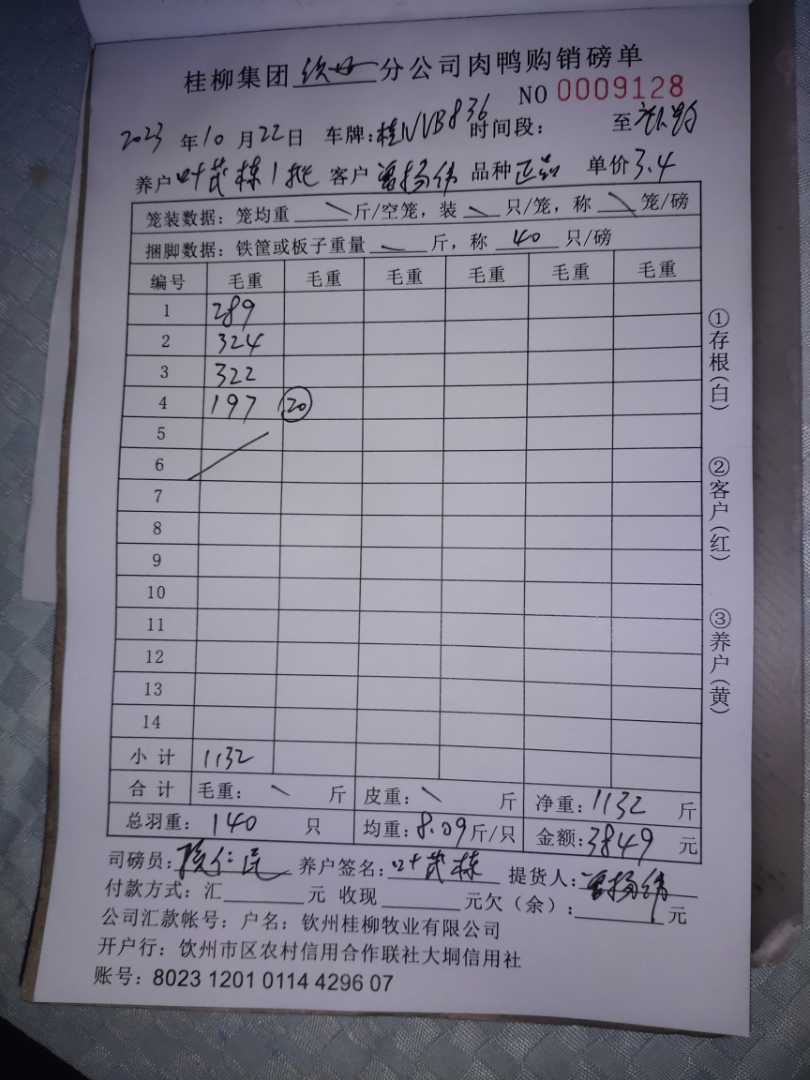 桂柳集团钦州分公司肉鸭购销磅单
NO 0009128
2023年10月22日 车牌:桂NVB836 时间段: 至
养户叶茂栋1批 客户曾扬纬 品种正品 单价3.4
笼装数据:笼均重 \ 斤/空笼,装 \ 只/笼,称 \ 笼/磅
捆脚数据:铁筐或板子重量 \ 斤,称 40 只/磅
编号 毛重 毛重 毛重 毛重 毛重 毛重
1 289
2 324
3 322
4 197 20
5
6
7
8
9
10
11
12
13
14
小计 1132
合计 毛重: \ 斤 皮重: \ 斤 净重:1132 斤
总羽重:140 只 均重:8.09斤/只 金额:3849 元
司磅员:仁民 养户签名:叶茂栋 提货人:曾扬纬
付款方式:汇 元 收现 元欠(余): 元
公司汇款帐号:户名:钦州桂柳牧业有限公司
开户行:钦州市区农村信用合作联社大垌信用社
账号:8023 1201 0114 4296 07
①存根(白)
②客户(红)
③养户(黄)